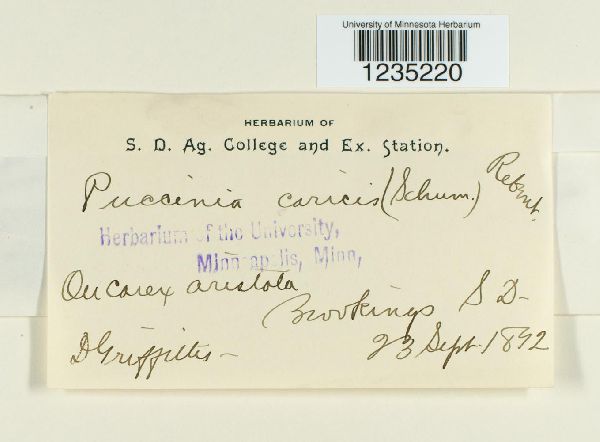 University of Minnesota Herbarium
1235220
HERBARIUM OF
S. D. Ag. College and Ex. Station.
Puccinia caricis (Schum.) Rebent.
Herbarium of the University,
Minneapolis, Minn,
On Carex aristata
Brookings S D-
D Griffiths-
23 Sept. 1892